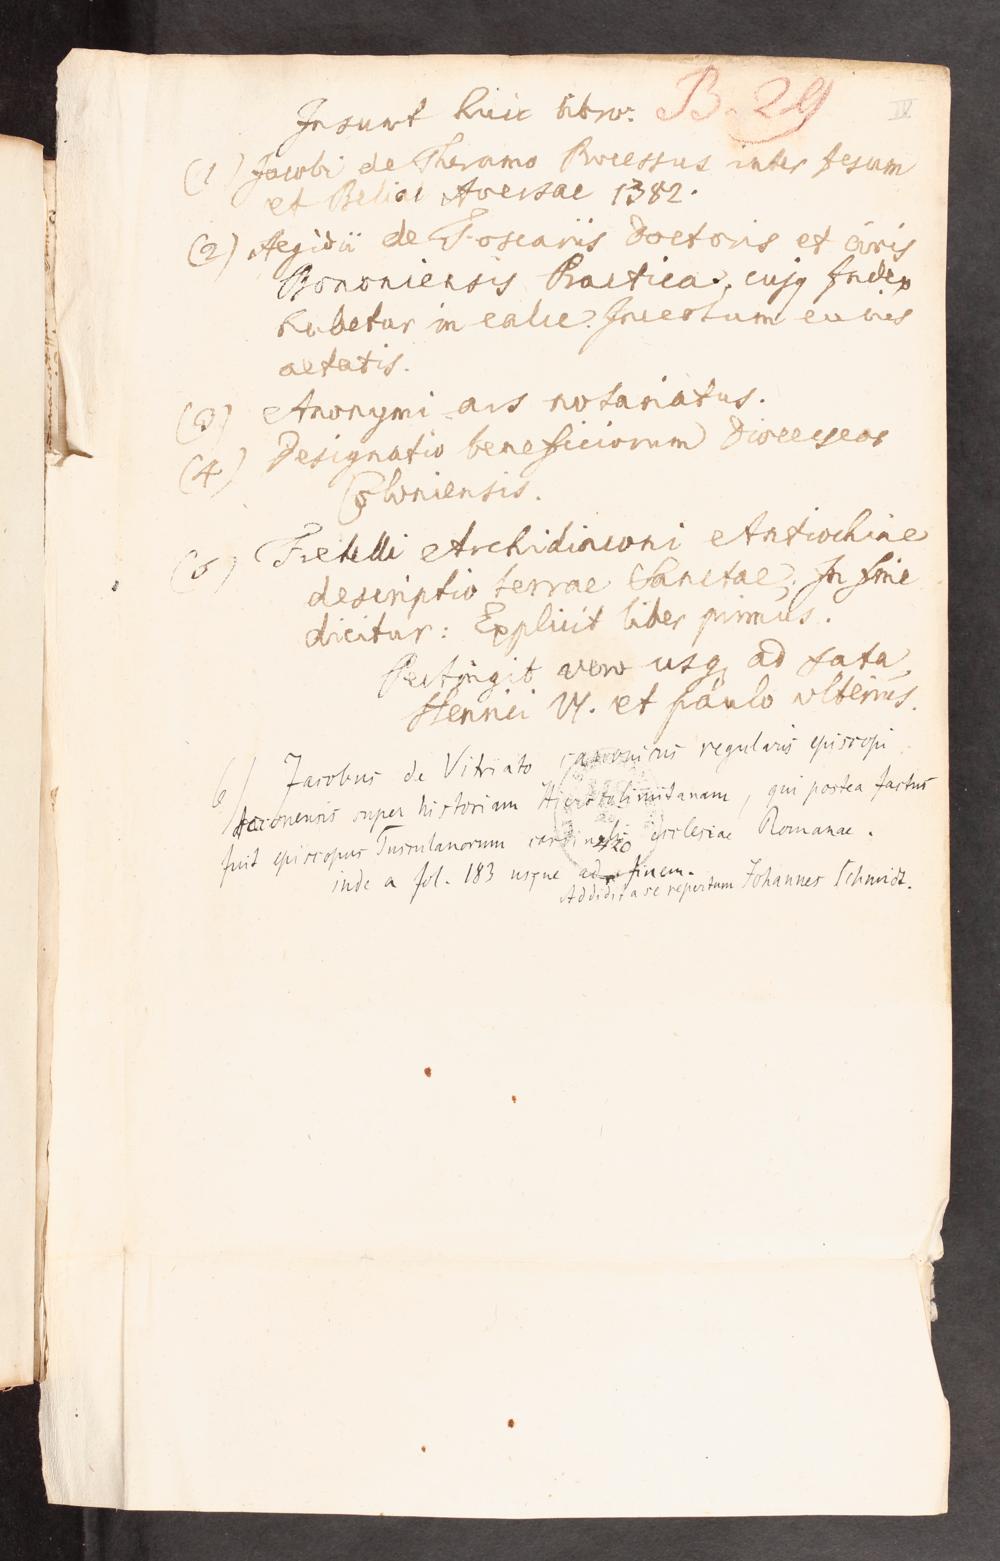 Insunt huic libro: B. 29 IV
(1) Jacobi de Theramo Processus inter Jesum
et Belial Aversae 1382.
(2) Aegidii de Foscariis Doctoris et civis
Bononiensis Practica, cujq Index
habetur in calce. Incertum cuivis
aetatis.
(3) Anonymi ars notariatus.
(4) Designatio beneficiorum Dioeceseos
Coloniensis.
(5) Fretelli Archidiaconi Antiochiae
descriptio terrae Sanctae, In fine
dicitur: Explicit liber primus.
Pertingit vero usq ad fata
Henrici VI. et paulo ulterius.
6) Jacobus de Vitriato canonicus regularis episcopi
Acconensis super historiam Hierosolimitanam, qui postea factus
fuit episcopus Tusculanorum cardinalis ecclesiae Romanae.
inde a fol. 183 usque ad finem.
Addidit a se repertum Johannes Schmidt.